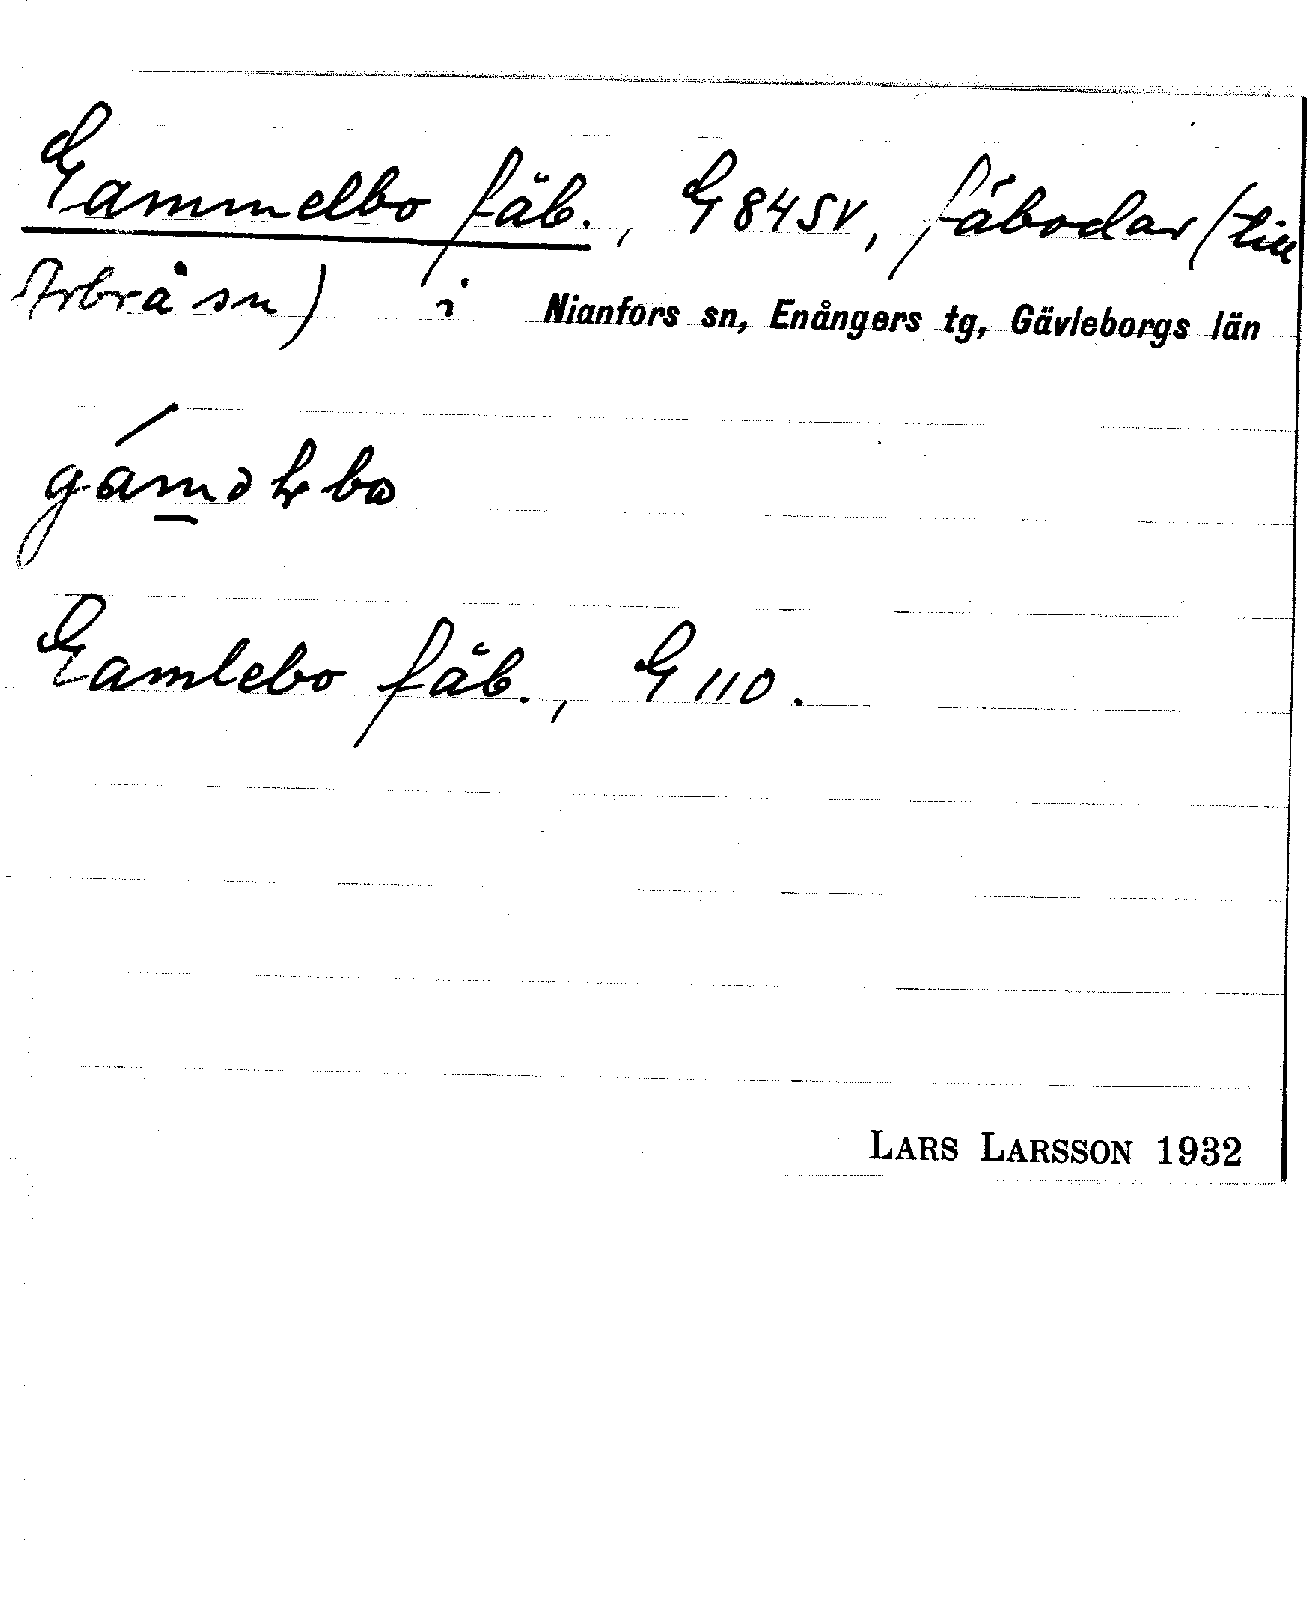 Gammelbo fäb., G 84 SV, fäbodar (till
Arbrå sn) i Nianfors sn, Enångers tg, Gävleborgs län
gáməɫbɷ
Gamlebo fäb., G 110.
LARS LARSSON 1932